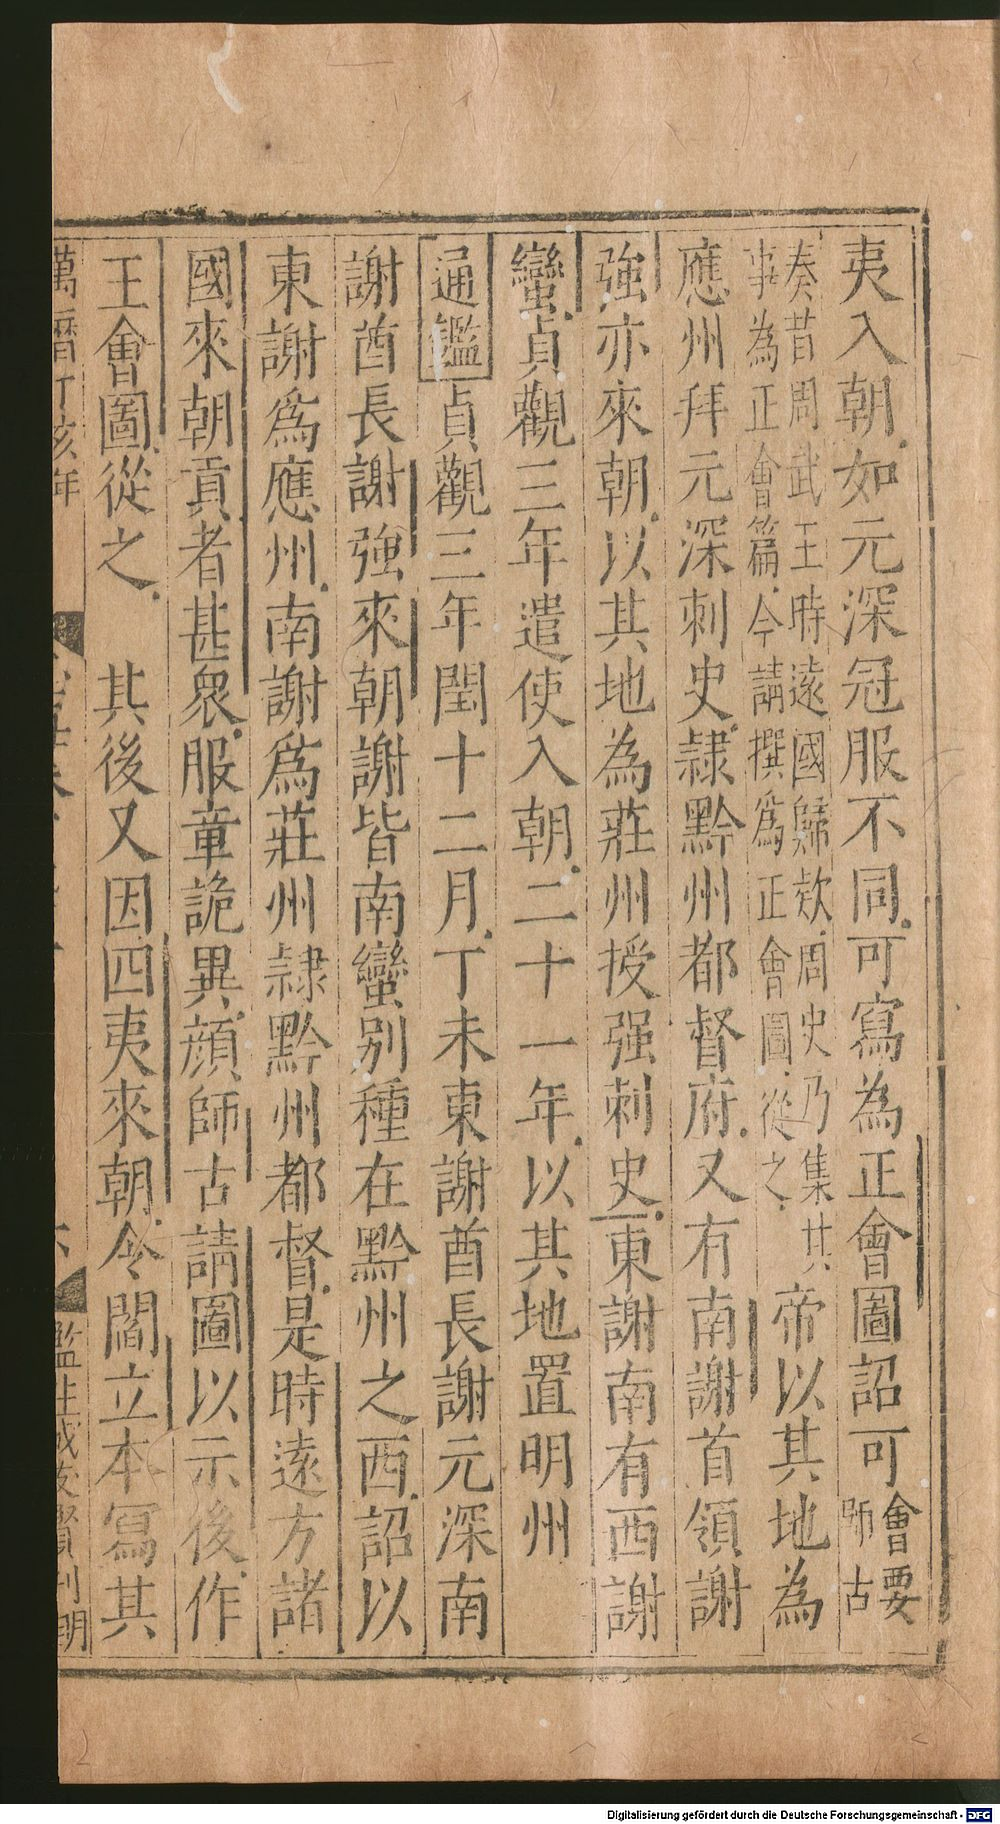 夷入朝如元深冠服不同可寫為正會圖詔可會要師古
奏昔周武王時遠國歸欵周史乃集其
事為正會篇今請撰為正會圖從之
帝以其地為
應州拜元深刺史隷黔州都督府又有南謝首領謝
強亦來朝以其地為莊州授强刺史東謝南有西謝
蠻貞觀三年遣使入朝二十一年以其地置明州
通鑑貞觀三年閏十二月丁未東謝酋長謝元深南
謝酋長謝強來朝謝皆南蠻別種在黔州之西詔以
東謝爲應州南謝爲莊州隷黔州都督是時遠方諸
國來朝貢者甚衆服章詭異顔師古請圖以示後作
王會圖從之 其後又因四夷來朝令閻立本寫其
萬曆丁亥年
六
監生戚友賢刊明
Digitalisierung gefördert durch die Deutsche Forschungsgemeinschaft - DFG